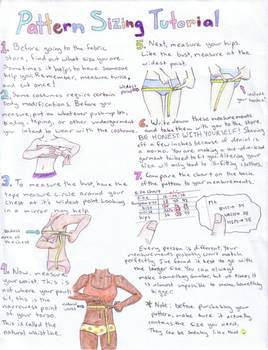 Pattern Sizing Tutorial
1. Before going to the fabric
store, find out what size you are.
Sometimes it helps to have someone
help you. Remember, measure twice,
and cut once!
2. Some costumes require certain
body modifications. Before you
measure, put on whatever push-up bra,
binder, taping, or other undergarment
you intend to wear with the costume.
3. To measure the bust, have the
tape measure & rule around your
chest at it's widest point. Looking
in a mirror may help.
4. Now, measure
your waist. This is
not where your pants
sit, this is the
narrowest point
of your torso.
This is called the
natural waistline.
5. Next, measure your hips.
Like the bust, measure at the
widest point.
6. Write down these measurements
and take them with you to the store.
BE HONEST WITH YOURSELF!
off a few inches because of denial is
a no-no. You are making a
garment tailored to fit you!
size will only lead to ill-fitting clothes.
7. Compare the chart on the back
of the pattern to your measurements.
Every person is different. Your
measurements probably won't match
perfectly. I've found it best to go with
the larger size. You can always
make something smaller, but at times, it
is almost impossible to make something
bigger!
* Note: before purchasing your
pattern, make sure it actually
contains the size you need.
They can be sneaky like that